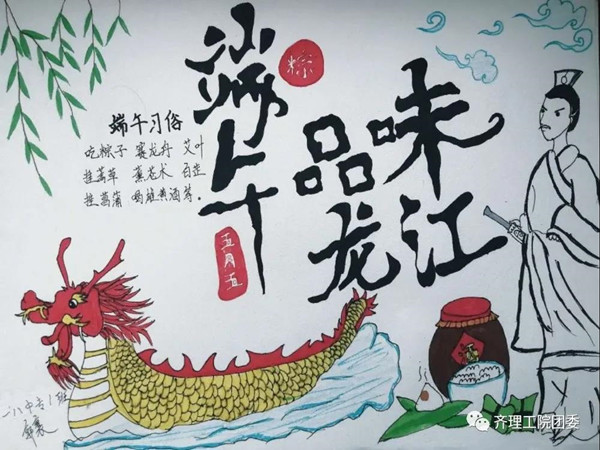 端午
粽
五月五
品味
龙江
端午习俗
吃粽子 赛龙舟 艾叶
挂 草 薰 术
挂菖蒲 喝雄黄酒等.
酒
1班
齐理工院团委